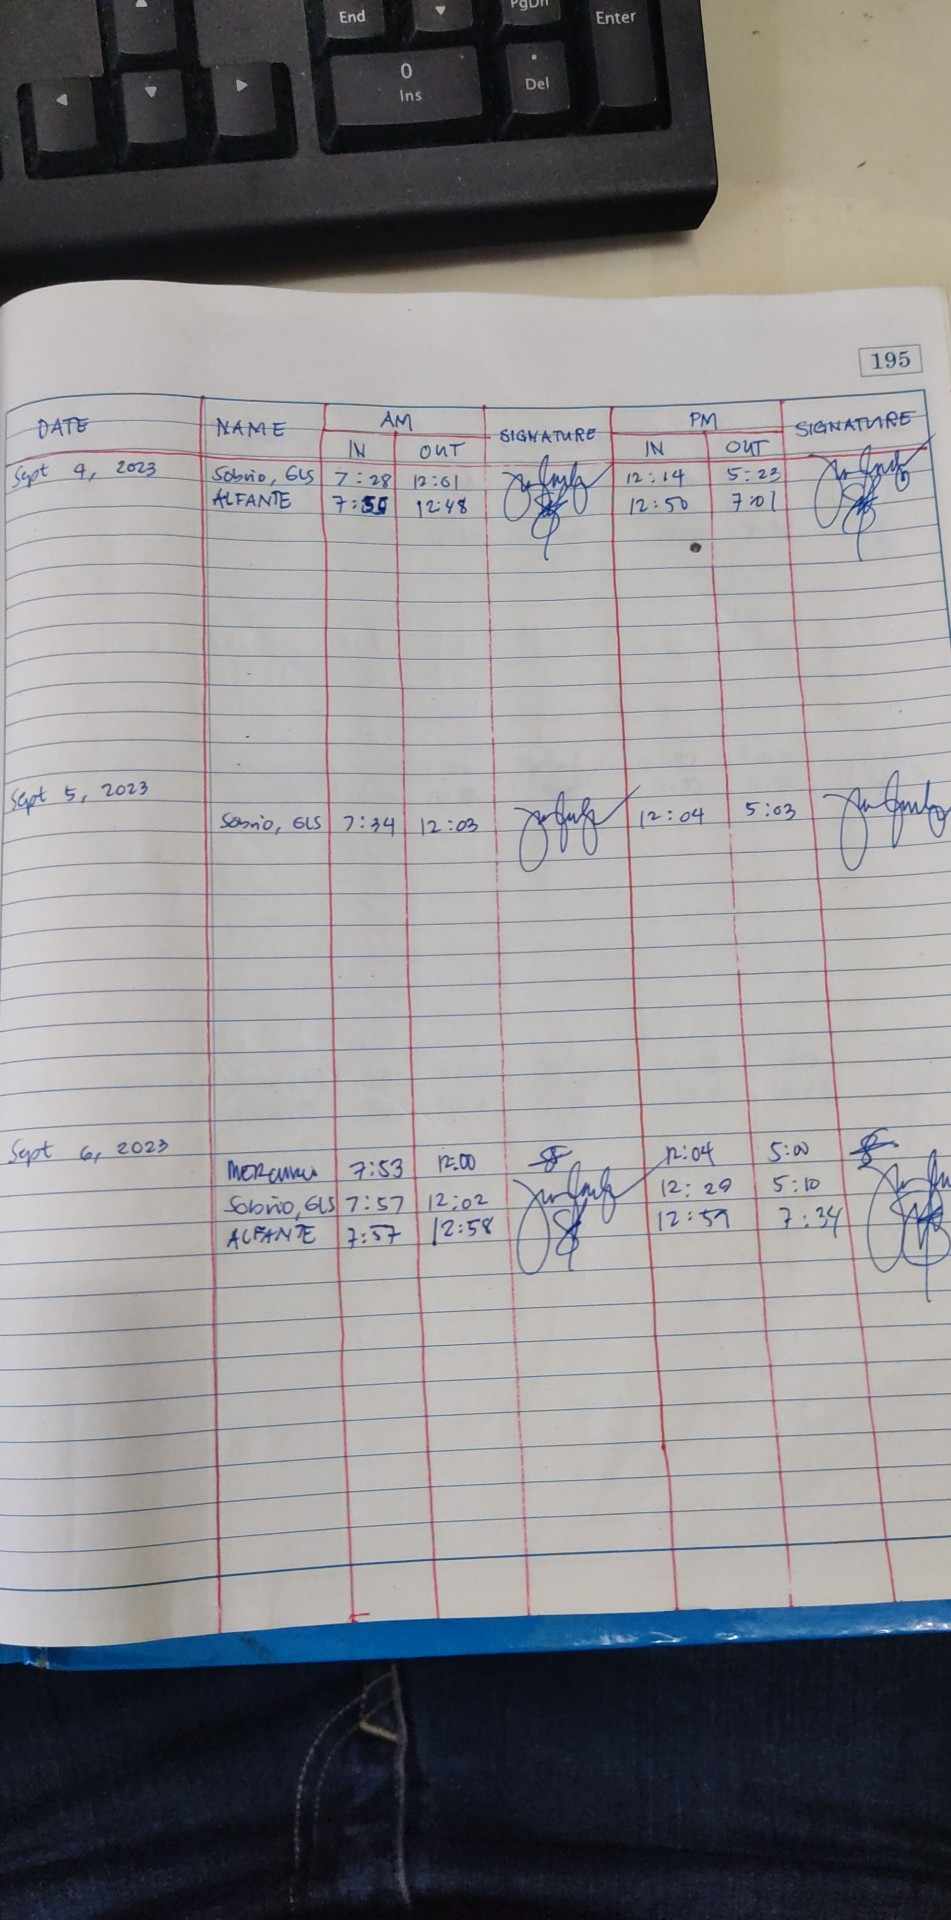 End
PgDn
Enter
0
Ins
Del
195
DATE NAME AM SIGNATURE PM SIGNATURE
IN OUT IN OUT
Sept 4, 2023 Sobrio, GLS 7:28 12:01 12:14 5:23
ALFANTE 7:56 12:48 12:50 7:01
Sept 5, 2023
Sobrio, GLS 7:34 12:03 12:04 5:03
Sept 6, 2023
7:53 12:00 12:04 5:00
Sobrio, GLS 7:57 12:02 12:29 5:10
ALFANTE 7:57 12:58 12:59 7:34